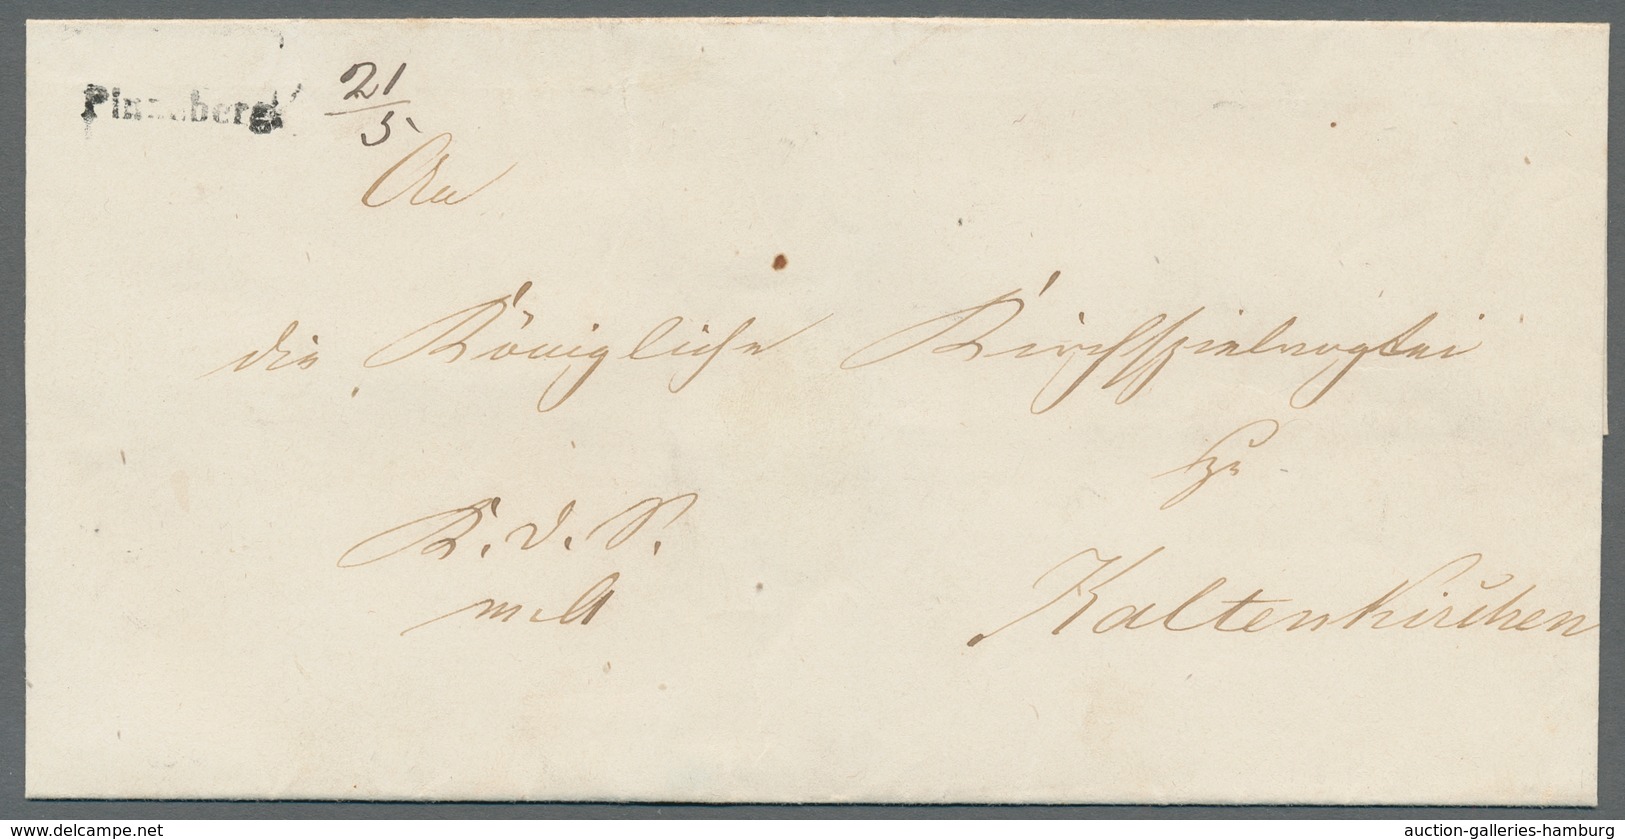 Pinneberg 21/5
An
die Königliche Kirchspielvogtei
zu
K. d. S.
Kaltenkirchen
www.delcampe.net
auction-galleries-hamburg